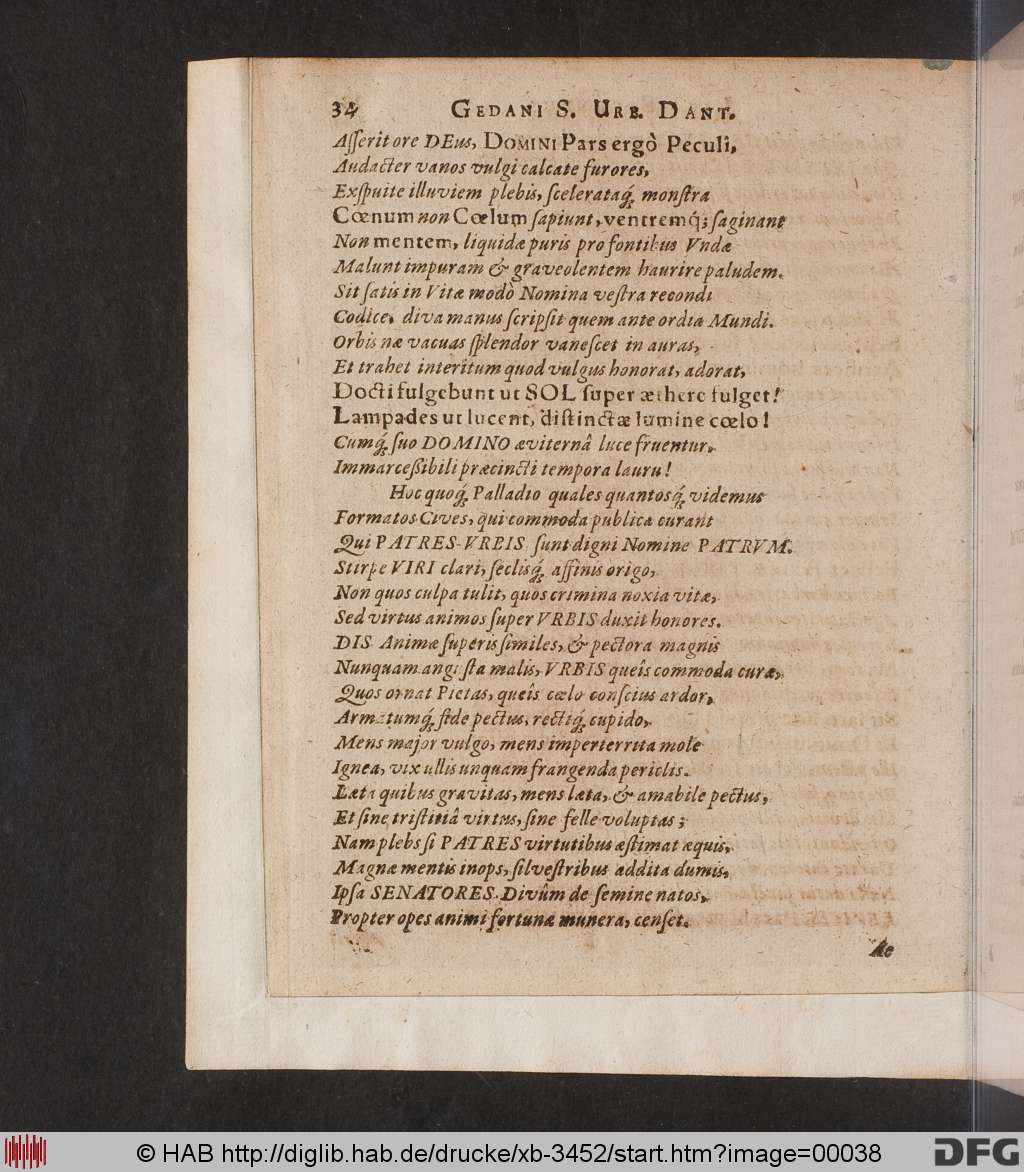 34 GEDANI S. URB. DANT.
Asserit ore DEus, DOMINI Pars ergò Peculî,
Audacter vanos vulgi calcate furores,
Exspuite illuviem plebis, scelerataq́; monstra
Cœnum non Cœlum sapiunt, ventremq́; saginant
Non mentem, liquidæ puris pro fontibus Vndæ
Malunt impuram & graveolentem haurire paludem.
Sit satis in Vitæ modò Nomina vestra recondi
Codice, diva manus scripsit quem ante ordia Mundi.
Orbis næ vacuas splendor vanescet in auras,
Et trahet interitum quod vulgus honorat, adorat,
Docti fulgebunt ut SOL super æthere fulget!
Lampades ut lucent, distinctæ lumine cœlo!
Cumq́; suo DOMINO æviternâ luce fruentur,
Immarceßibili præcincti tempora lauru!
Hoc quoq́; Palladio quales quantosq́; videmus
Formatos Cives, qui commoda publica curant
Qui PATRES VRBIS sunt digni Nomine PATRVM.
Stirpe VIRI clari, seclisq́; affinis origo,
Non quos culpa tulit, quos crimina noxia vitæ,
Sed virtus animos super VRBIS duxit honores.
DIS Animæ superis similes, & pectora magnis
Nunquam angusta malis, VRBIS queîs commoda curæ,
Quos ornat Pietas, queîs cœlo conscius ardor,
Armatumq́; fide pectus, rectiq́; cupido,
Mens major vulgo, mens imperterrita mole
Ignea, vix ullis unquam frangenda periclis.
Læta quibus gravitas, mens læta, & amabile pectus,
Et sine tristitiâ virtus, sine felle voluptas;
Nam plebs si PATRES virtutibus æstimat æquis,
Magnæ mentis inops, silvestribus addita dumis,
Ipsa SENATORES Divûm de semine natos,
Propter opes animi fortunæ munera, censet.
Ac
© HAB http://diglib.hab.de/drucke/xb-3452/start.htm?image=00038
DFG